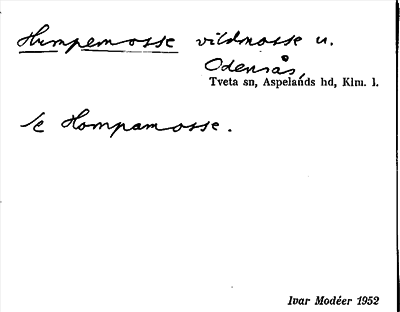 Humpemosse vildmosse u.
Odensås
Tveta sn, Aspelands hd, Klm. l.
Se Hompamosse.
Ivar Modéer 1952